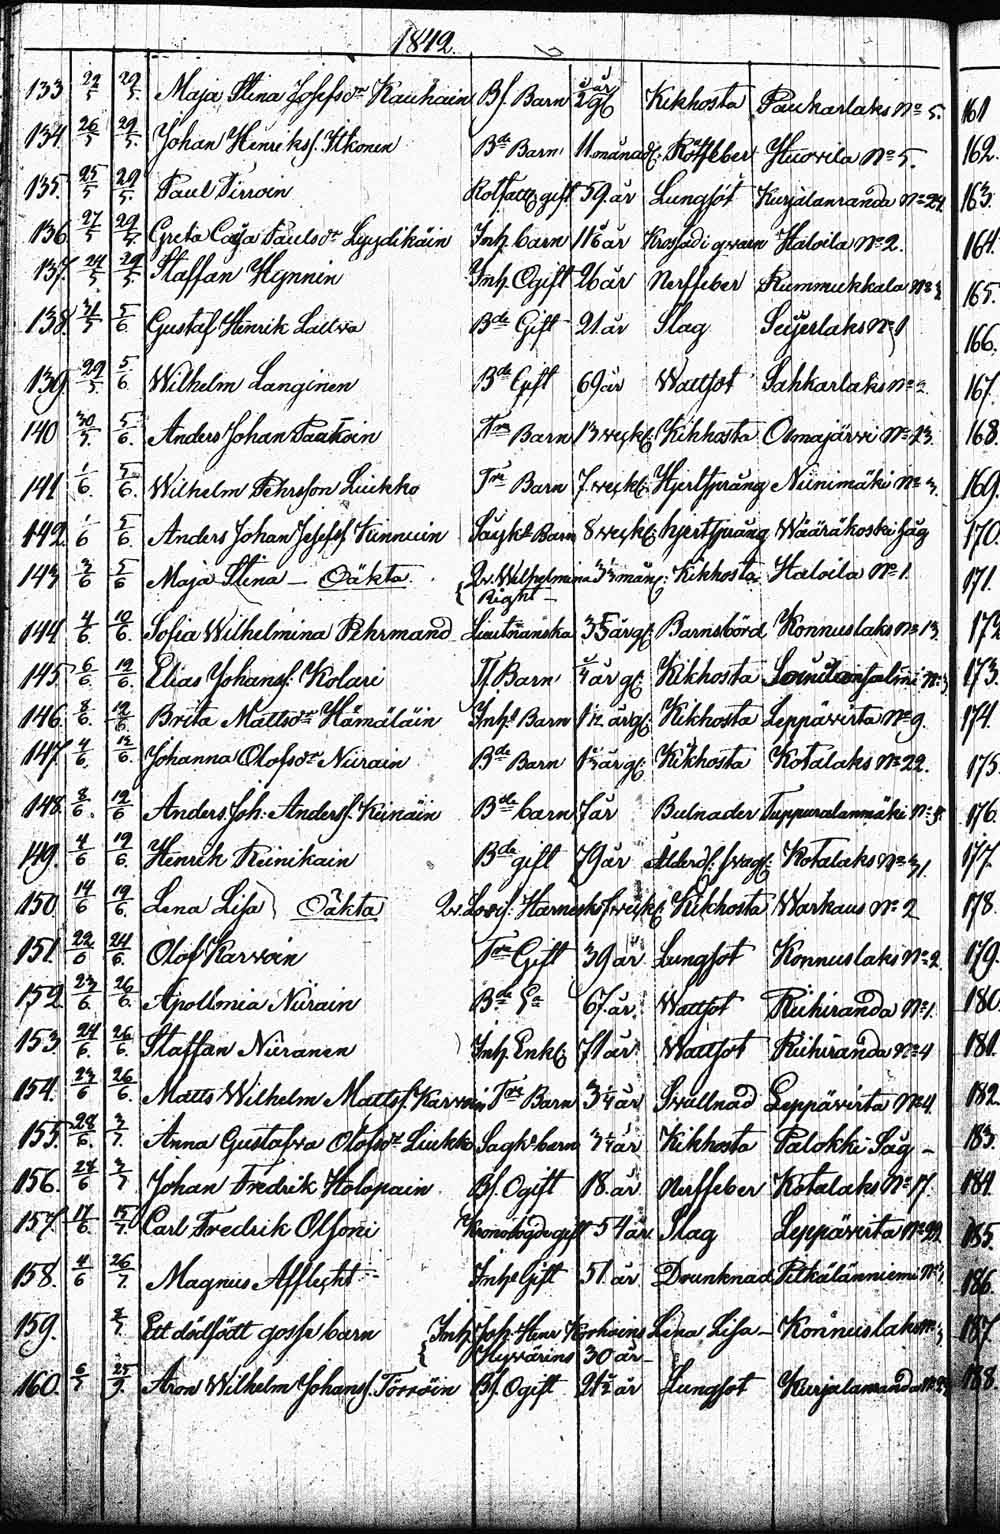 1842.
133 22/5 29/5. Maja Stina Josefsdr Kauhain Bf. Barn 2 år Kikhosta Paukarlaks No 5.
134. 26/5 29/5. Johan Henriksf. Itkonen Bde Barn 11 månad. Rötfeber Huovila No 5.
135. 25/5 29/5. Paul Tirroin gift 59 år Lungsot Kurjalanranda No 24.
136. 27/5 29/5. Greta Caja Paulsdr Lyydikäin Inh. barn år Haloila No 2.
137. 24/5 29/5. Staffan Hynnin Inh. Ogift 26 år Nerffeber Rummukkala No
138. 31/5 5/6 Gustaf Henrik Lattva Bde Gift 21 år Slag No 1
139. 29/5. 5/6 Wilhelm Langinen Bde Gift 69 år Wattsot Sahkarlaks No 2.
140 30/5. 5/6. Anders Johan Taskoin Barn 13 veck. Kikhosta Osmajärvi No 23.
141 1/6. 5/6. Wilhelm Pehrsson Liukko Tre Barn 7. veck. Hjertsprång Niinimäki No 3.
142. 1/6 5/6. Anders Johan Josefsf. Kinnuin Barn 8 veck. hjertsprång Wääräkoski Såg
143 3/6 5/6 Maja Stina – Oäkta Qv. Wilhelmina mån. Kikhosta Haloila No 1.
Right –
144 4/6. 10/6. Sofia Wilhelmina Pehrmand Lieutnanska 35 år g. Barnsbörd Konnuslaks No 13.
145. 6/6. 12/6. Elias Johansf. Kolari Tf. Barn år g. Kikhosta No
146. 8/6. 12/6. Brita Mattsdr Hämäläin Inhs Barn år g. Kikhosta Leppävirta No 9.
147. 4/6. 12/6. Johanna Olofsdr Niirain Bde Barn år g. Kikhosta Kotalaks No 22.
148. 8/6. 12/6 Anders Joh. Andersf. Keinäin Bde barn 7 år Bulnader Tuppuralanmäki No
149. 4/6 19/6. Henrik Reinikain Bde gift 79 år Ålderd. svag. Kotalaks No 31.
150. 14/6 19/6. Lena Lisa Oäkta Qv. Lovis. veck. Kikhosta Warkaus No 2
151. 22/6 24/6. Olof Karvoin Tre Gift 39 år Lungsot Konnuslaks No 2.
152. 23/6 26/6. Apollonia Niirain Bde 67. år Wattsot Riihiranda No 1.
153. 24/6. 26/6. Staffan Niiranen Inh. Enkl. 71 år Wattsot Riihiranda No 4
154. 23/6 26/6. Matts Wilhelm Mattsf. Karvoin Tre Barn 3 1/4 år Svullnad Leppävirta No 4.
155. 28/6. 3/7. Anna Gustafva Olofsdr Liukko Sagks barn år Kikhosta Palokki Såg –
156. 24/6 3/7 Johan Fredrik Holopain Bf. Ogift 18. år Nerffeber Kotalaks No 17.
157. 17/6. 15/7. Carl Fredrik Olsoni Kronofogde gift 54 år Slag Leppävirta No 29.
158. 4/6 26/7. Magnus Afflecht Inhs Gift 51. år Drunknad Pitkälänniemi No
159. 2/7. Ett dödfödt gosse barn Inh. Joh. Henr. Korhoins Lena Lisa – Konnuslaks
Hyvärins 30 år –
160. 25/9. Aron Wilhelm Johansf. Törröin Bf. Ogift 21 år Lungsot Kurjalanranda
161
162.
163.
164.
165.
166.
167.
168.
169.
170.
171.
172
173.
174.
175
176.
177.
178.
179.
180.
181.
182.
183.
184.
185.
186.
187.
188.